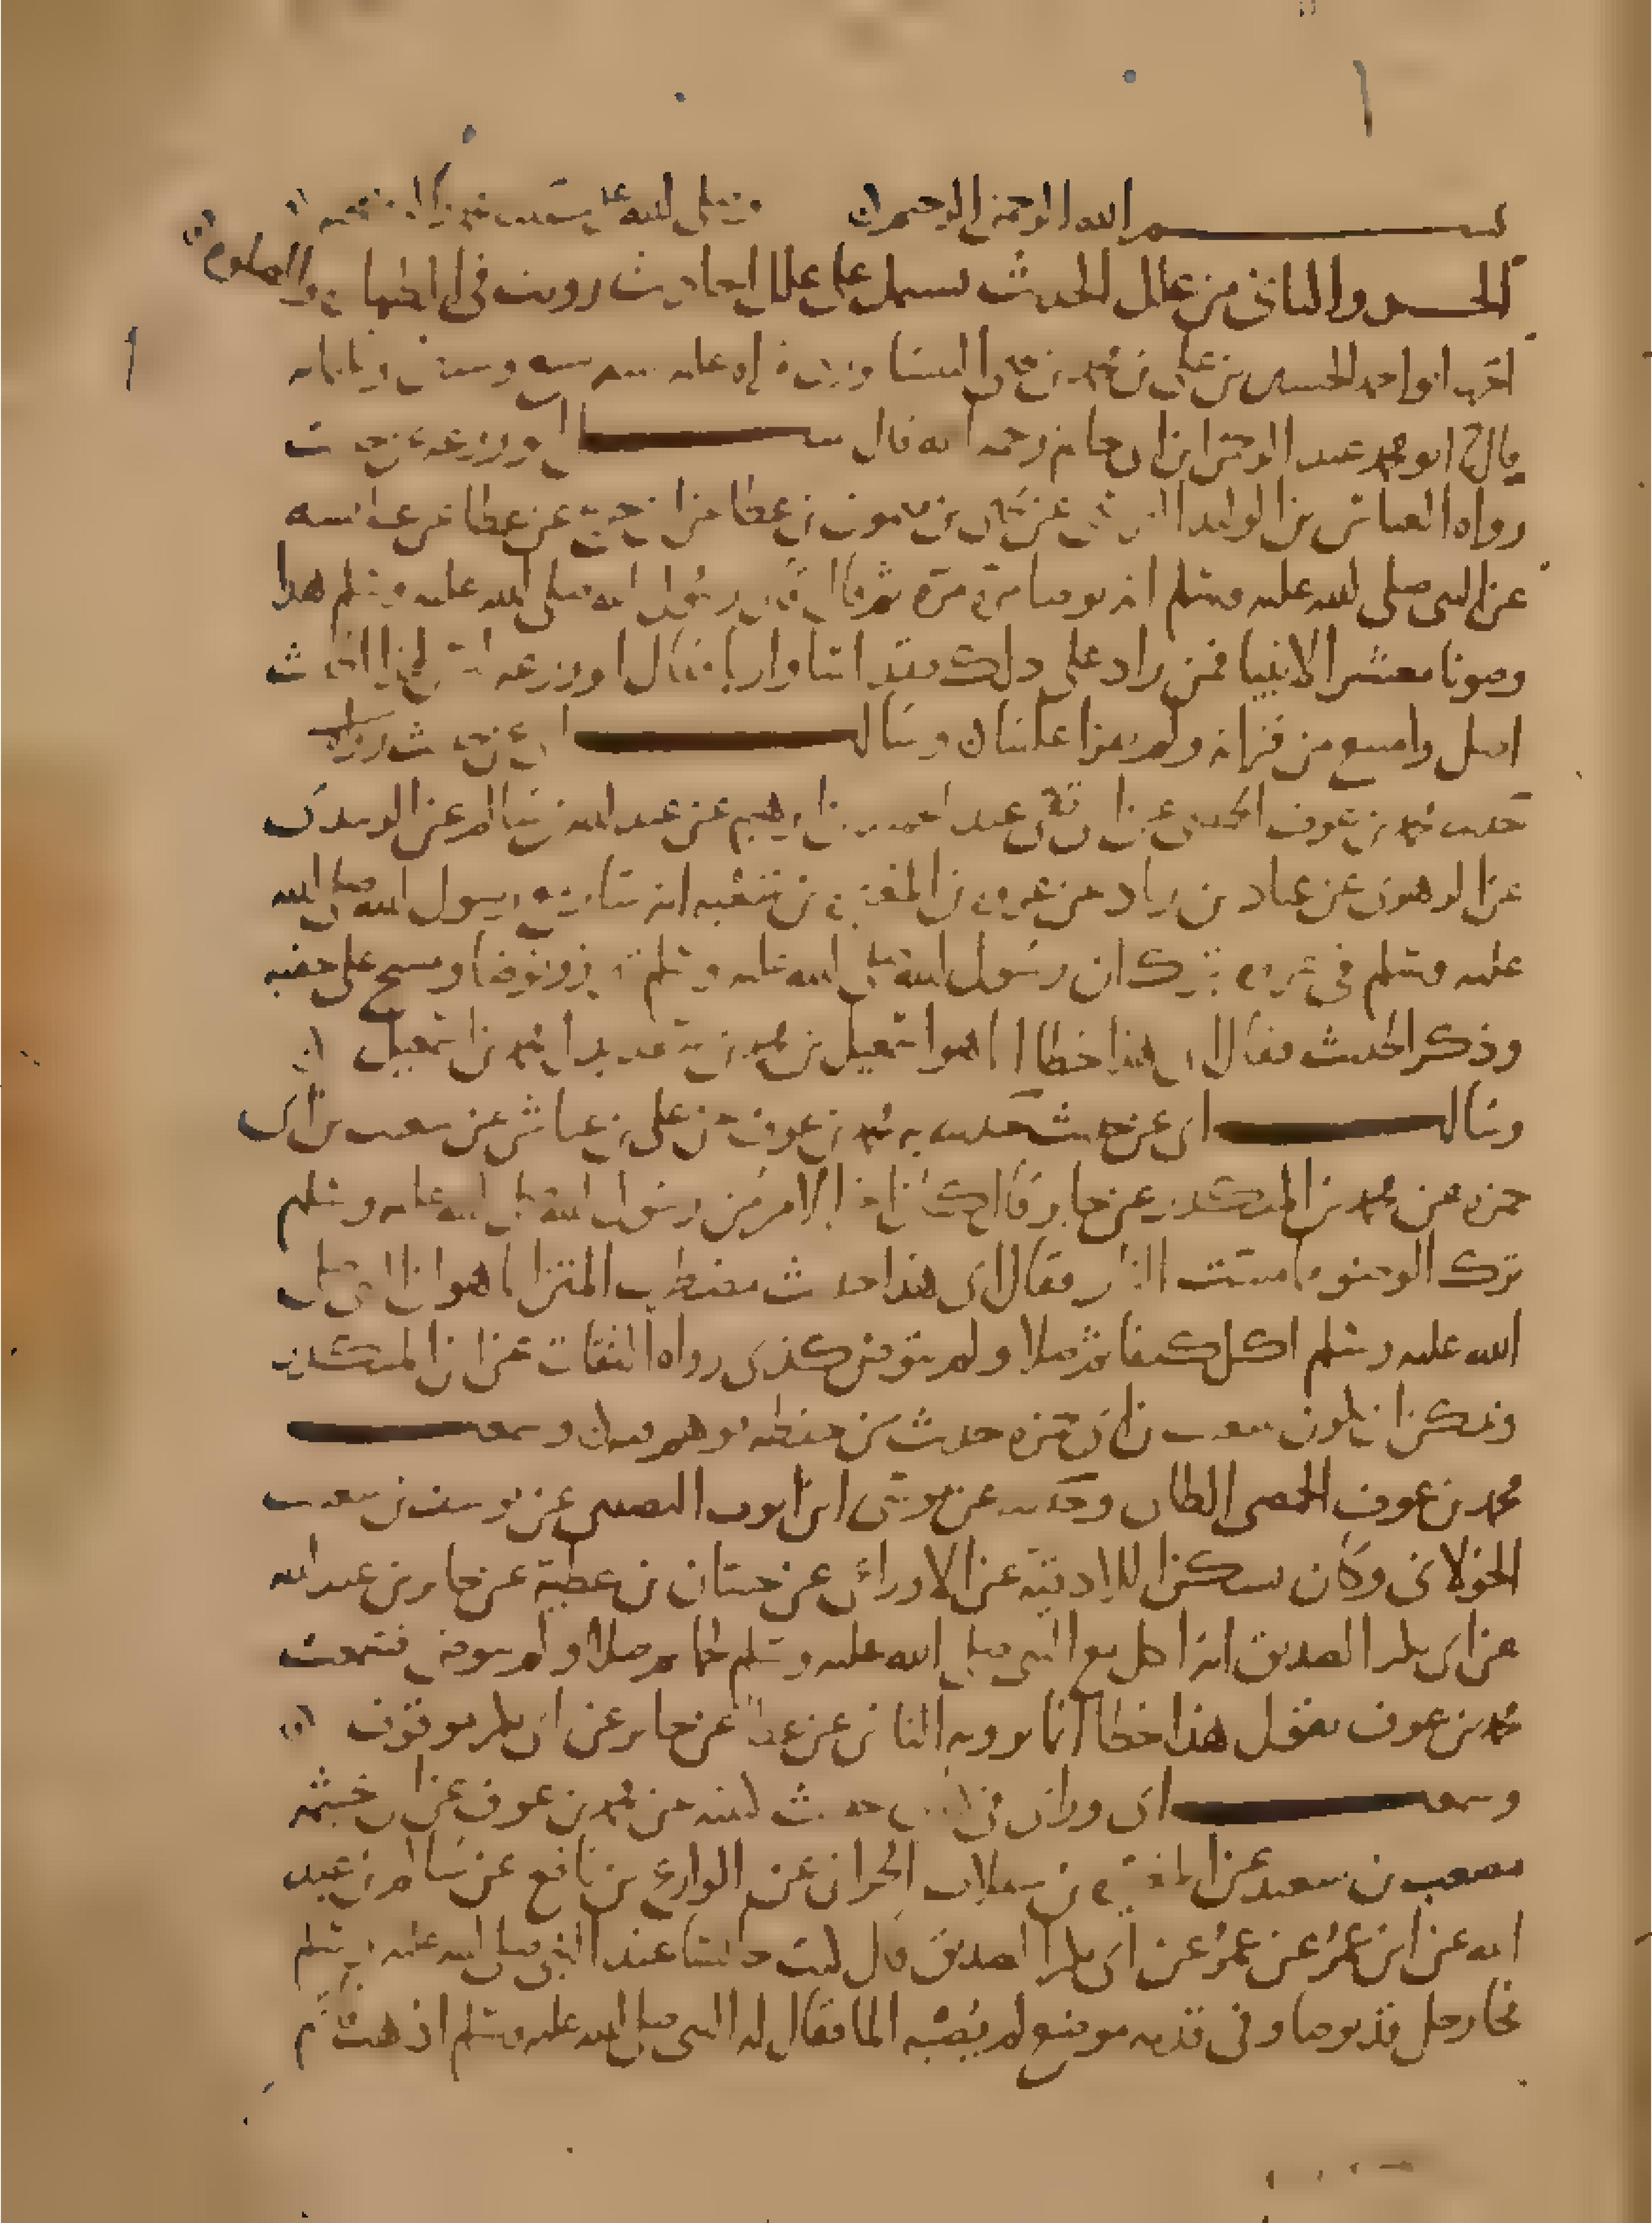 بسم الله الرحمن الرحيم وصلى الله على
الجزو الثاني من علل الحديث يشتمل على علل احاديث رويت في الطهارة والصلوة
ابو احمد الحسين بن علي بن محمد بن
قال ابو محمد عبد الرحمن بن ابي حاتم رحمه الله قال سئل ابو زرعة عن حديث
رواه العباس بن الوليد عن بن ميمون بن عطا عن ابن جريج عن عطا عن عائشة
عن النبي صلى الله عليه وسلم انه توضا مرة مرة ثم قال قال رسول الله صلى الله عليه وسلم هذا
وضونا معشر الانبيا فمن زاد على ذلك فقد اسا واربا فقال ابو زرعة ليس لهذا الحديث
اصل وامتنع من قراته ولم يقرا علينا وسالت ابي عن حديث رواه
محمد بن عوف الحمصي عن ابي تقي عبد الحميد بن ابرهيم عن عبد الله بن سالم عن الزبيدي
عن الزهري عن عباد بن زياد عن عروة بن المغيرة بن شعبه انه رسول الله صلى الله
عليه وسلم في غزوة تبوك ان رسول الله صلى الله عليه وسلم تبرز وتوضا ومسح على خفيه
وذكر الحديث فقال ابي هذا خطا انما هو اسمعيل بن محمد بن سعد بدل محمد بن اسمعيل
وسالت ابي عن حديث حدثنا به محمد بن عوف عن علي بن عياش عن شعيب بن ابي
حمزة عن محمد بن المنكدر عن جابر قال كان اخر الامر من رسول الله صلى الله عليه وسلم
ترك الوضو مما مست النار فقال ابي هذا حديث مضطرب المتن انما هو ان النبي صلى
الله عليه وسلم اكل كتفا ثم صلا ولم يتوض كذى رواه الثقات عن ابن المنكدر
ويمكن ان يكون شعيب بن ابي حمزة حدث من حفظه فوهم فيه وسمعت
محمد بن عوف الحمصي الطاي وحدثنا عن موسى ابن ايوب النصيبي عن يوسف بن شعيب
الخولاني وكان يسكن اللاذقية عن الاوزاعي عن حسان بن عطية عن جابر بن عبد الله
عن ابي بكر الصديق انه اكل مع النبي صلى الله عليه وسلم لحما ثم صلا ولم يتوض فسمعت
محمد بن عوف يقول هذا خطا انما يرويه الناس عن عطا عن جابر عن ابي بكر موقوف
وسمعت ابي وراى في كتابي حديث كتبته عن محمد بن عوف عن ابي خيثمة
مصعب بن سعيد عن المغيرة بن سقلاب الحراني عن الوازع بن نافع عن سالم بن عبد
الله عن ابن عمر عن عمر عن ابي بكر الصديق قال كنت جالسا عند النبي صلى الله عليه وسلم
فجا رجل قد توضا وفي قدمه موضع لم يصبه الما فقال له النبي صلى الله عليه وسلم اذهب فاتم